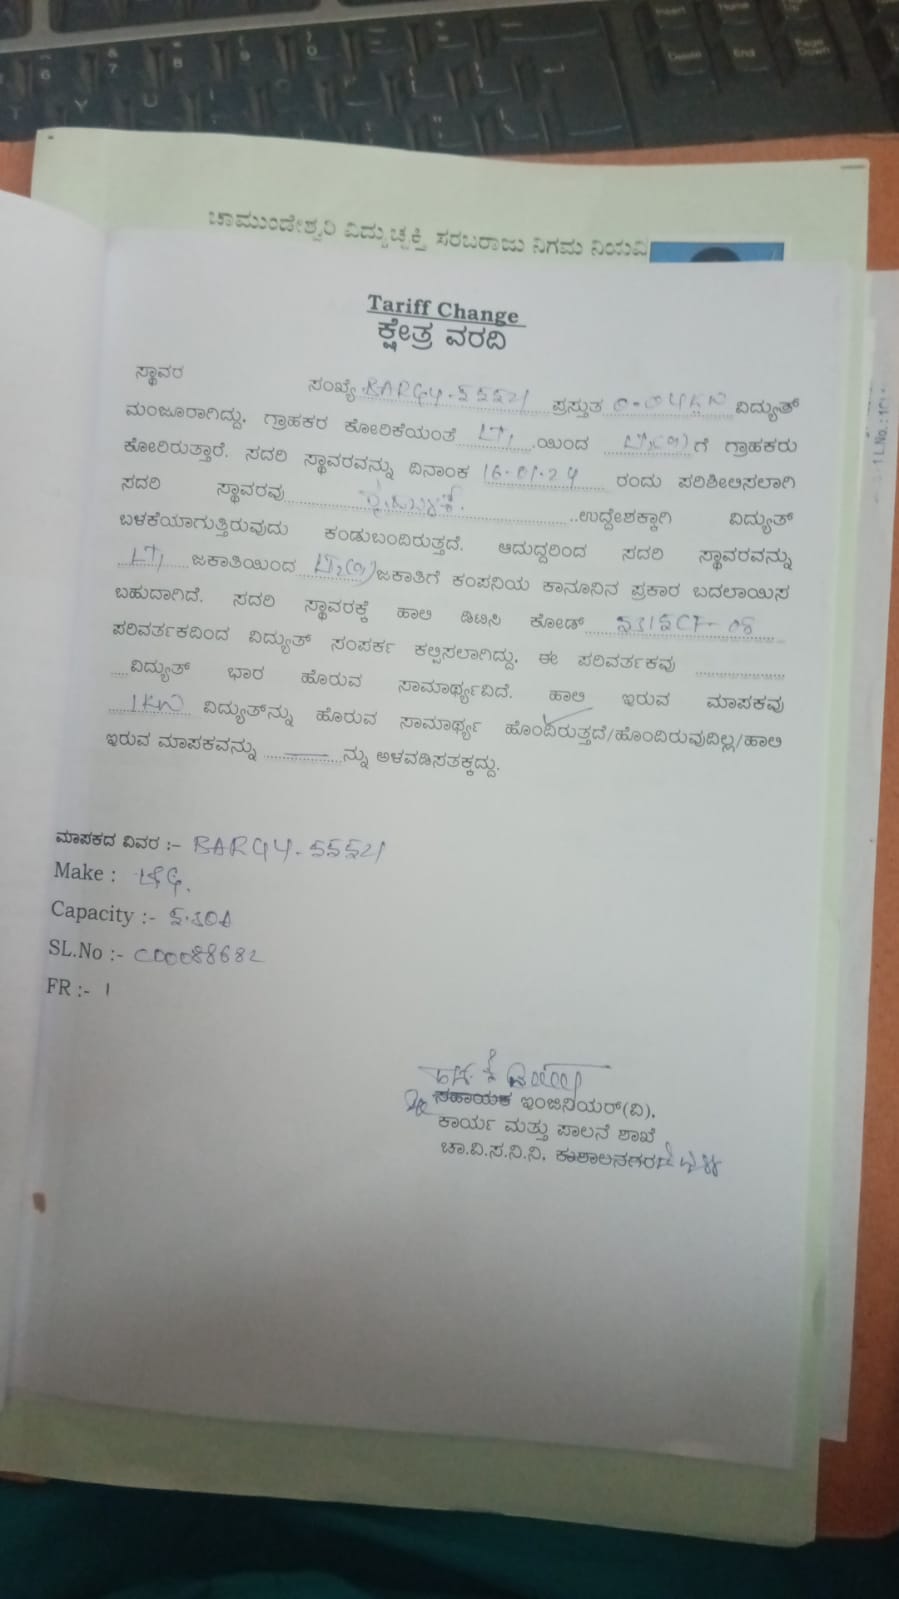 ಚಾಮುಂಡೇಶ್ವರಿ ವಿದ್ಯುಚ್ಛಕ್ತಿ ಸರಬರಾಜು ನಿಗಮ ನಿಯಮಿ
Tariff Change
ಕ್ಷೇತ್ರ ವರದಿ
ಸ್ಥಾವರ ಸಂಖ್ಯೆ ಪ್ರಸ್ತುತ 0.04KW ವಿದ್ಯುತ್
ಮಂಜೂರಾಗಿದ್ದು, ಗ್ರಾಹಕರ ಕೋರಿಕೆಯಂತೆ LT1 ಯಿಂದ ಗೆ ಗ್ರಾಹಕರು
ಕೋರಿರುತ್ತಾರೆ. ಸದರಿ ಸ್ಥಾವರವನ್ನು ದಿನಾಂಕ 16.01.24 ರಂದು ಪರಿಶೀಲಿಸಲಾಗಿ
ಸದರಿ ಸ್ಥಾವರವು ಉದ್ದೇಶಕ್ಕಾಗಿ ವಿದ್ಯುತ್
ಬಳಕೆಯಾಗುತ್ತಿರುವುದು ಕಂಡುಬಂದಿರುತ್ತದೆ. ಆದುದ್ದರಿಂದ ಸದರಿ ಸ್ಥಾವರವನ್ನು
LT1 ಜಕಾತಿಯಿಂದ ಜಕಾತಿಗೆ ಕಂಪನಿಯ ಕಾನೂನಿನ ಪ್ರಕಾರ ಬದಲಾಯಿಸ
ಬಹುದಾಗಿದೆ. ಸದರಿ ಸ್ಥಾವರಕ್ಕೆ ಹಾಲಿ ಡಿಟಿಸಿ ಕೋಡ್
ಪರಿವರ್ತಕದಿಂದ ವಿದ್ಯುತ್ ಸಂಪರ್ಕ ಕಲ್ಪಿಸಲಾಗಿದ್ದು, ಈ ಪರಿವರ್ತಕವು
ವಿದ್ಯುತ್ ಭಾರ ಹೊರುವ ಸಾಮಾರ್ಥ್ಯವಿದೆ. ಹಾಲಿ ಇರುವ ಮಾಪಕವು
1KW ವಿದ್ಯುತ್‌ನ್ನು ಹೊರುವ ಸಾಮಾರ್ಥ್ಯ ಹೊಂದಿರುತ್ತದೆ/ಹೊಂದಿರುವುದಿಲ್ಲ/ಹಾಲಿ
ಇರುವ ಮಾಪಕವನ್ನು ನ್ನು ಅಳವಡಿಸತಕ್ಕದ್ದು.
ಮಾಪಕದ ವಿವರ :-
Make :
Capacity :- 5-30A
SL.No :- C00088682
FR :- 1
ಸಹಾಯಕ ಇಂಜಿನಿಯರ್(ವಿ),
ಕಾರ್ಯ ಮತ್ತು ಪಾಲನೆ ಶಾಖೆ
ಚಾ.ವಿ.ಸ.ನಿ.ನಿ, ಕುಶಾಲನಗರ